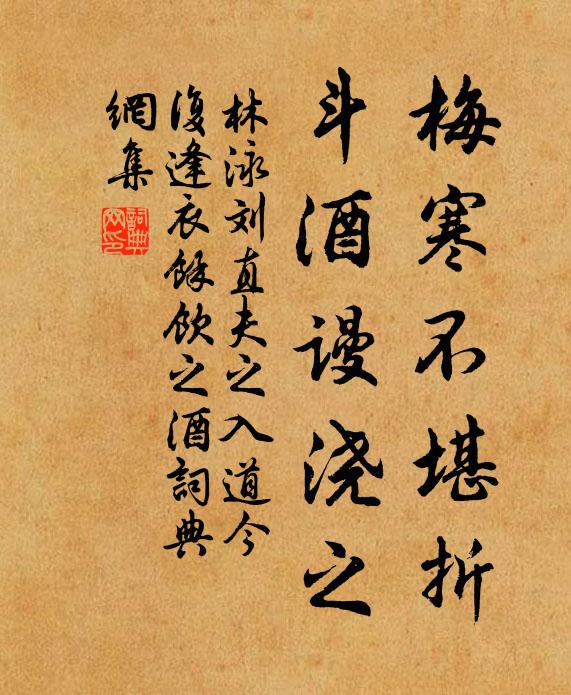 梅寒不堪折
斗酒谩浇之
林泳刘直夫之入道今
復逢衣餘飲之酒詞典
網集
詞典
网印